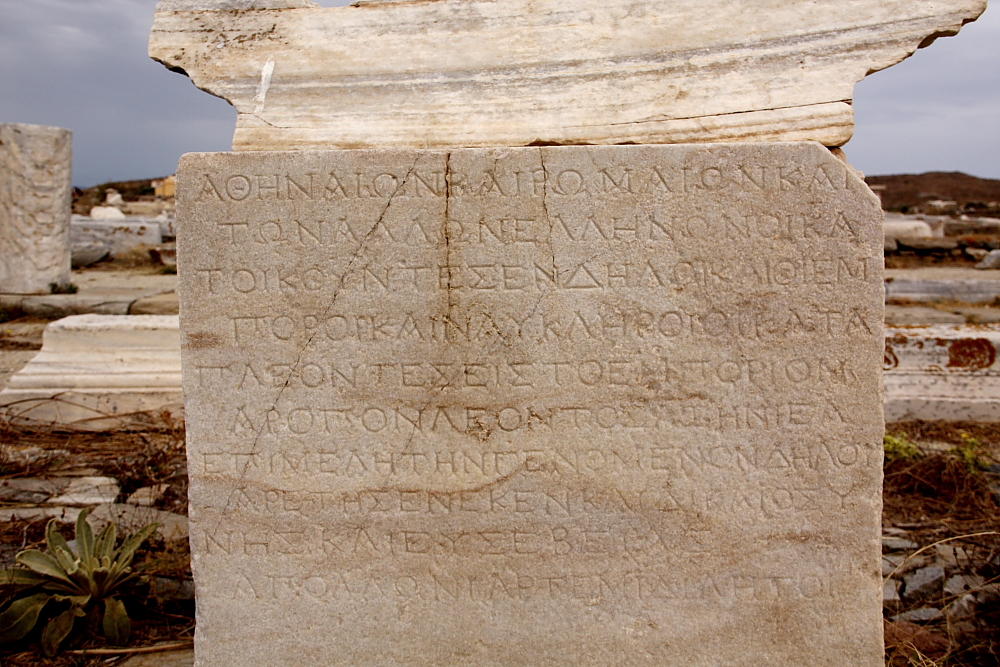 ΑΘΗΝΑΙΩΝΚΑΙΡΩΜΑΙΩΝΚΑΙ
ΤΩΝΑΛΛΩΝΕΛΛΗΝΩΝΟΙΚΑ
ΤΟΙΚΟΥΝΤΕΣΕΝΔΗΛΩΙΚΑΙΟΙΕΜ
ΠΟΡΟΙΚΑΙΝΑΥΚΛΗΡΟΙΟΙΚΑΤΑ
ΠΛΕΟΝΤΕΣΕΙΣΤΟΕΜΠΟΡΙΟΝ
ΑΡΟΠΟΝΛΕΟΝΤΟΣΑΖΗΝΙΕΑ
ΕΠΙΜΕΛΗΤΗΝΓΕΝΟΜΕΝΟΝΔΗΛΟΥ
ΑΡΕΤΗΣΕΝΕΚΕΝΚΑΙΔΙΚΑΙΟΣΥ
ΝΗΣΚΑΙΕΥΣΕΒΕΙΑΣ
ΑΠΟΛΛΩΝΙΑΡΤΕΜΙΔΙΛΗΤΟΙ